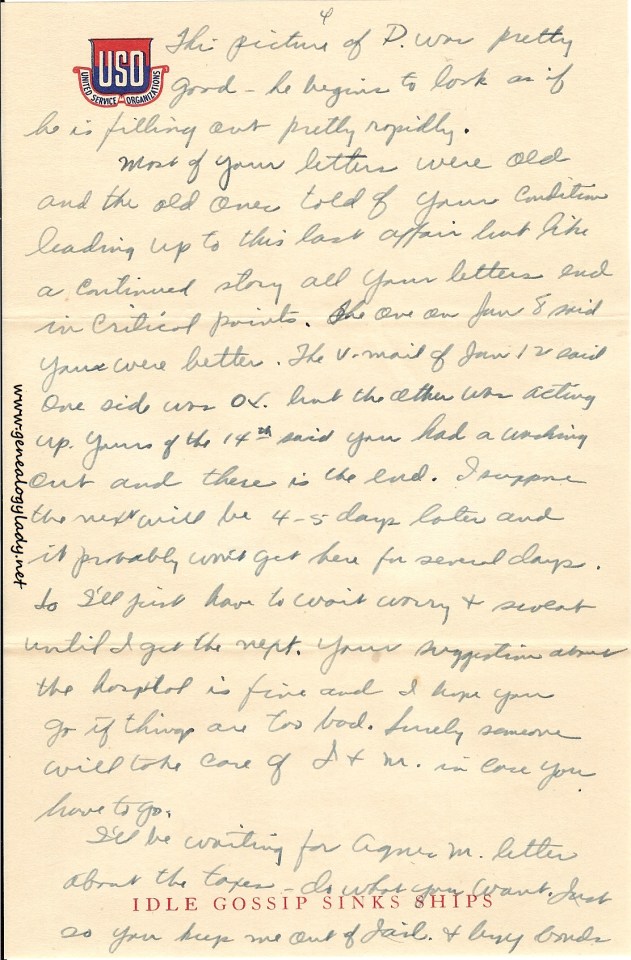 4
USO
UNITED SERVICE ORGANIZATIONS
This picture of D. was pretty
good - he begins to look as if
he is filling out pretty rapidly.
Most of your letters were old
and the old ones told of your condition
leading up to this last affair but like
a continued story all your letters end
in critical points. The one on Jan 8 said
you were better. The V-mail of Jan 12 said
one side was OK. but the other was acting
up. Yours of the 14th said you had a washing
out and there is the end. I suppose
the next will be 4-5 days later and
it probably won't get here for several days.
So I'll just have to wait worry + sweat
until I get the next. Your suggestion about
the hospital is fine and I hope you
go if things are too bad. Surely someone
will take care of J + M. in case you
have to go.
I'll be waiting for Agnes M. letter
about the taxes - do what you want. Just
IDLE GOSSIP SINKS SHIPS
so you keep me out of Jail. + buy bonds
www.genealogylady.net